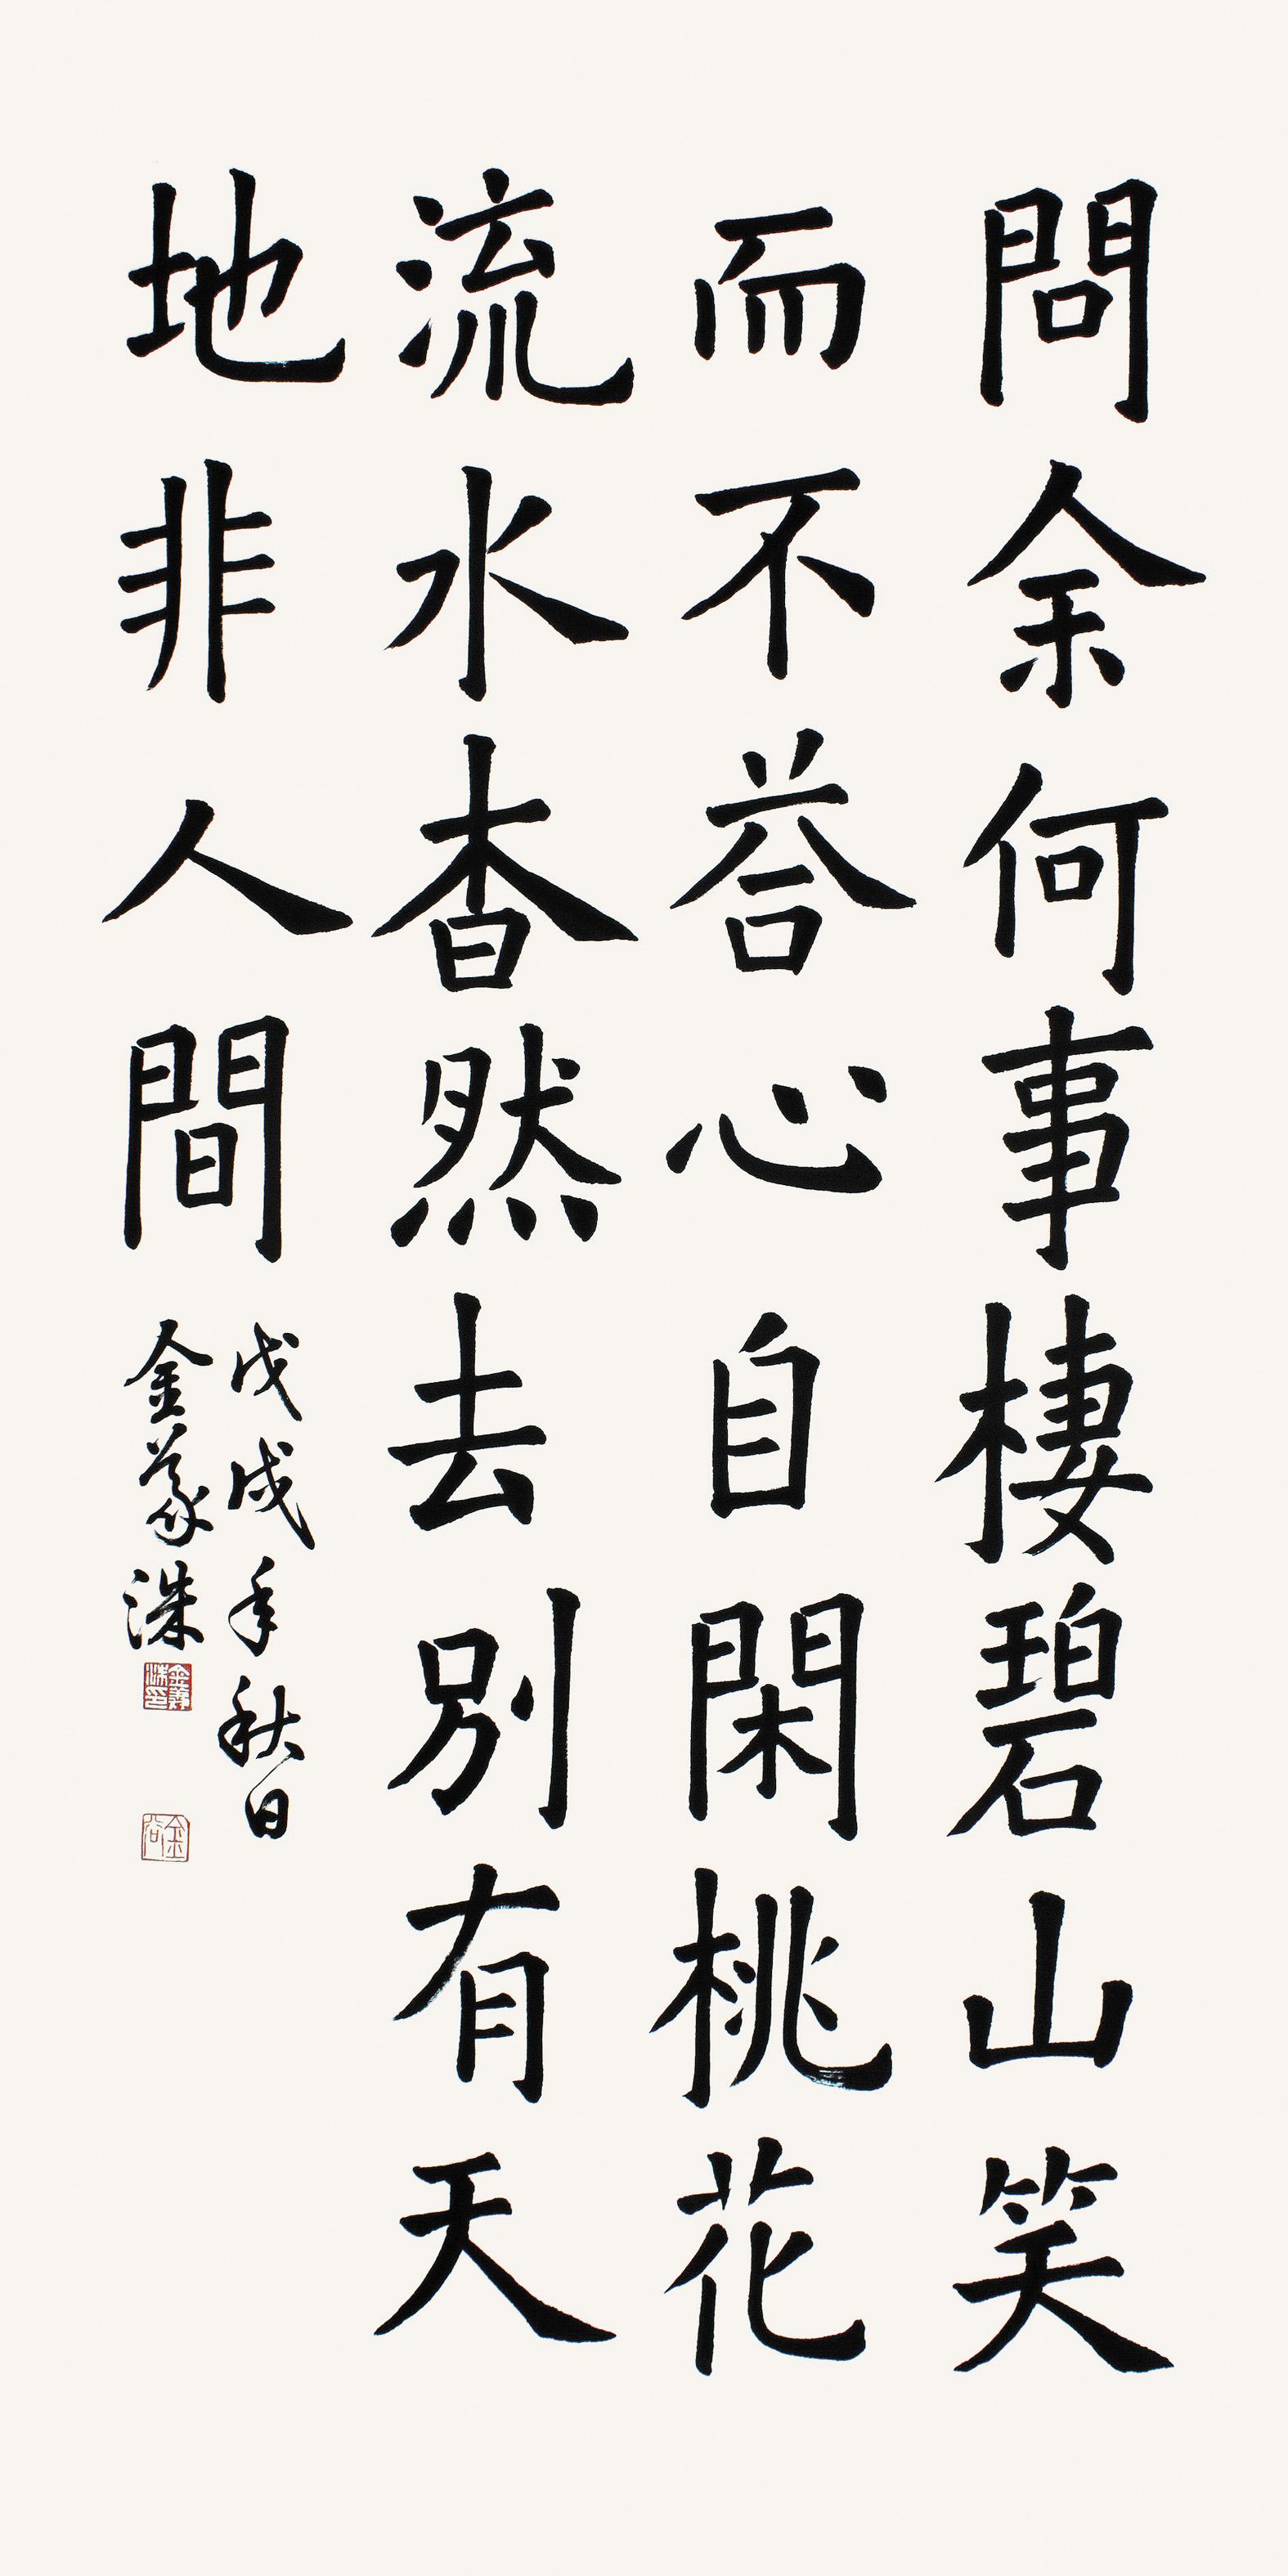 問余何事棲碧山笑
而不荅心自閑桃花
流水杳然去別有天
地非人間
戊戌年秋日
金羲洙
金羲洙印